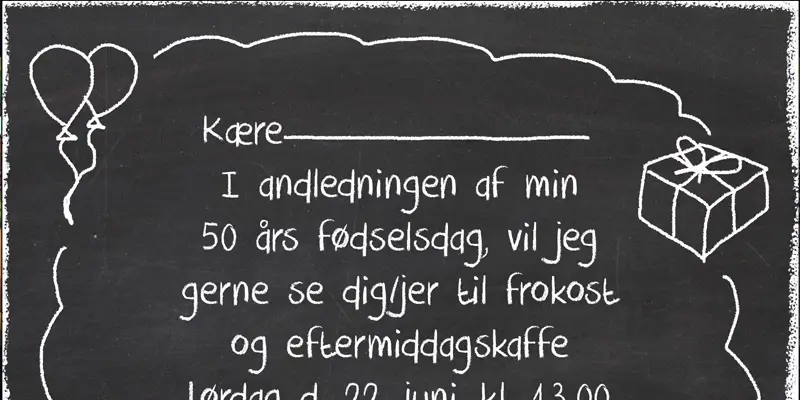 Kære
I andledningen af min
50 års fødselsdag, vil jeg
gerne se dig/jer til frokost
og eftermiddagskaffe
lørdag d. 22 juni kl. 13.00